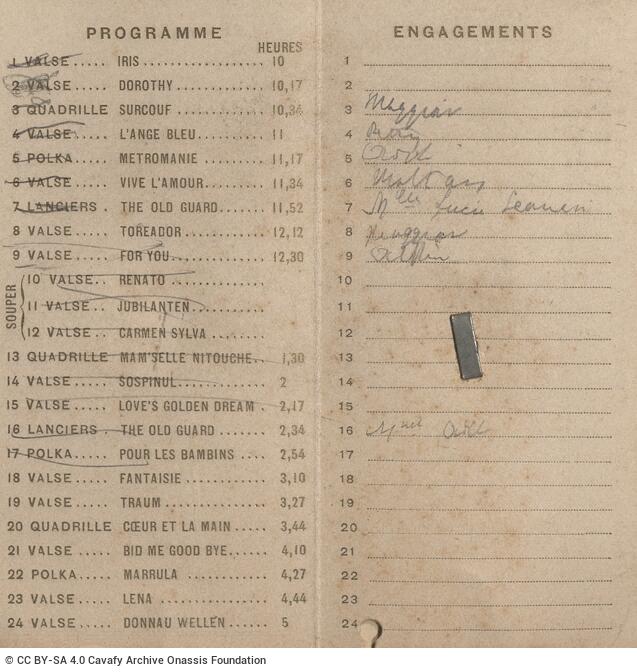 PROGRAMME
HEURES
1 VALSE ..... IRIS .................. 10
2 VALSE ..... DOROTHY ............... 10,17
3 QUADRILLE SURCOUF ................ 10,34
4 VALSE ..... L'ANGE BLEU ........... 11
5 POLKA ..... METROMANIE ........... 11,17
6 VALSE ..... VIVE L'AMOUR .......... 11,34
7 LANCIERS . THE OLD GUARD ........ 11,52
8 VALSE ..... TOREADOR ............. 12,12
9 VALSE ..... FOR YOU .............. 12,30
SOUPER
10 VALSE .. RENATO ...............
11 VALSE .. JUBILANTEN ..........
12 VALSE .. CARMEN SYLVA ........
13 QUADRILLE MAM'SELLE NITOUCHE .. 1,30
14 VALSE ..... SOSPINUL ............. 2
15 VALSE ..... LOVE'S GOLDEN DREAM . 2,17
16 LANCIERS . THE OLD GUARD ....... 2,34
17 POLKA ..... POUR LES BAMBINS ..... 2,54
18 VALSE ..... FANTAISIE ............ 3,10
19 VALSE ..... TRAUM ............... 3,27
20 QUADRILLE CŒUR ET LA MAIN ..... 3,44
21 VALSE ..... BID ME GOOD BYE ...... 4,10
22 POLKA ..... MARRULA ............. 4,27
23 VALSE ..... LENA ................ 4,44
24 VALSE ..... DONNAU WELLEN ....... 5
ENGAGEMENTS
1
2
3
4
5
6
7 Mlle Lucie
8
9
10
11
12
13
14
15
16
17
18
19
20
21
22
23
24
© CC BY-SA 4.0 Cavafy Archive Onassis Foundation